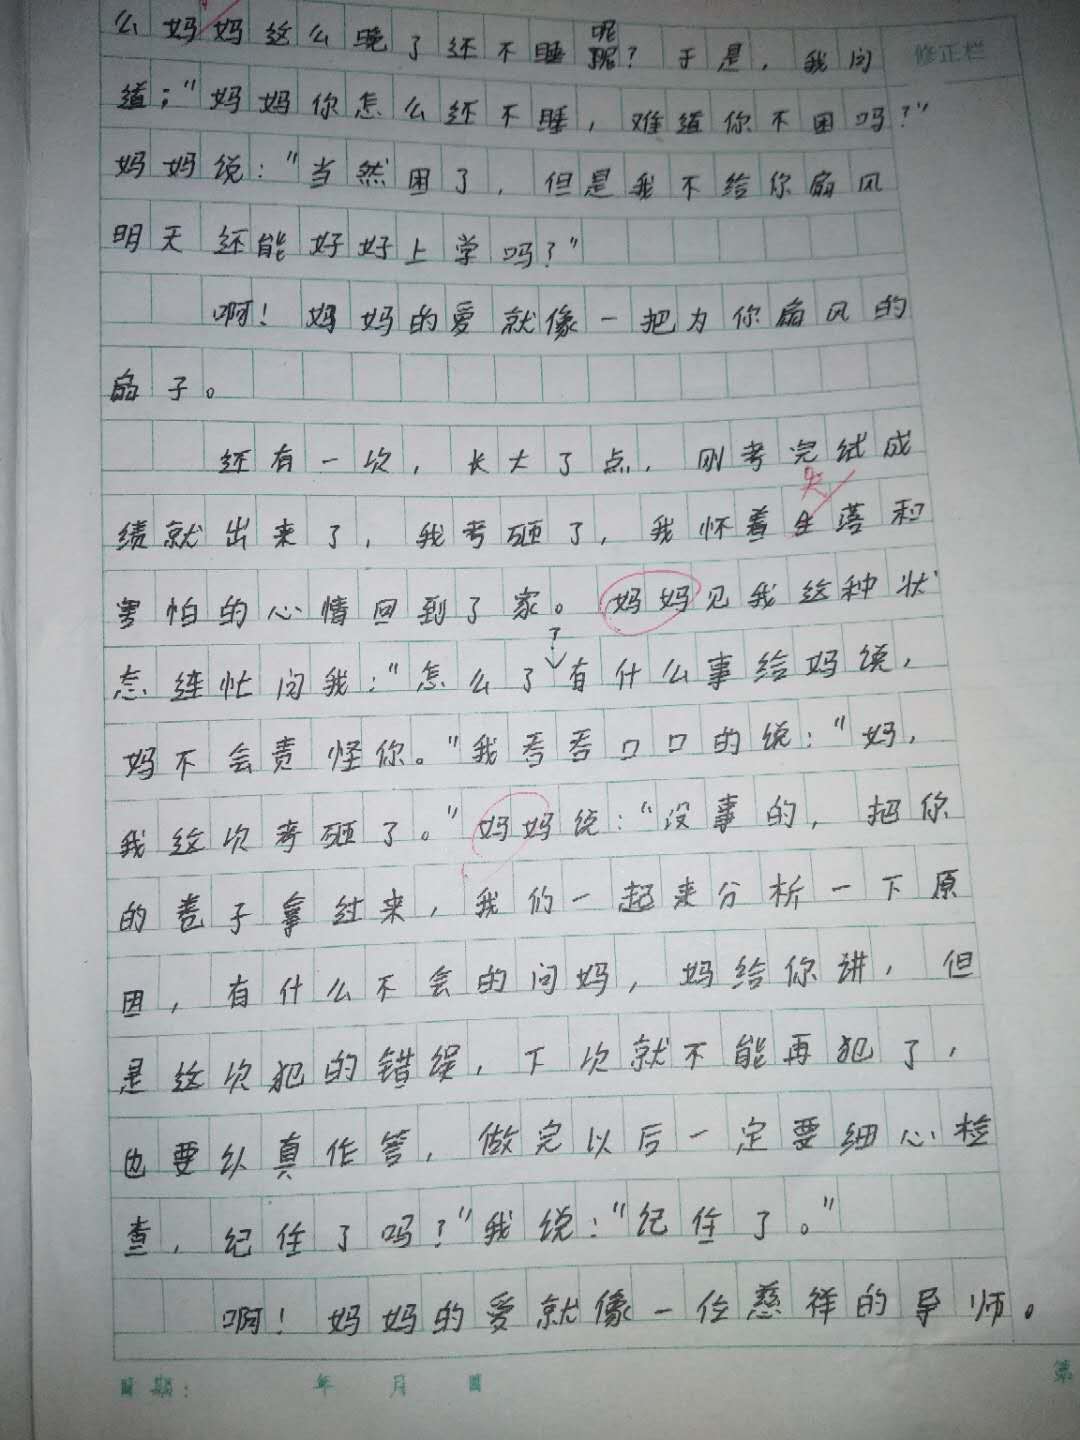 么妈妈这么晚了还不睡呢？于是，我问
修正栏
道；“妈妈你怎么还不睡，难道你不困吗？”
妈妈说：“当然困了，但是我不给你扇风
明天还能好好上学吗？”
啊！妈妈的爱就像一把为你扇风的
扇子。
还有一次，长大了点，刚考完试成
绩就出来了，我考砸了，我怀着失落和
害怕的心情回到了家。妈妈见我这种状
态连忙问我：“怎么了？有什么事给妈说，
妈不会责怪你。”我吞吞口口的说：“妈，
我这次考砸了。”妈妈说：“没事的，把你
的卷子拿过来，我们一起来分析一下原
因，有什么不会的问妈，妈给你讲，但
是这次犯的错误，下次就不能再犯了，
也要认真作答，做完以后一定要细心检
查，纪住了吗？”我说：“纪住了。”
啊！妈妈的爱就像一位慈祥的导师。
日期： 年 月 日
第